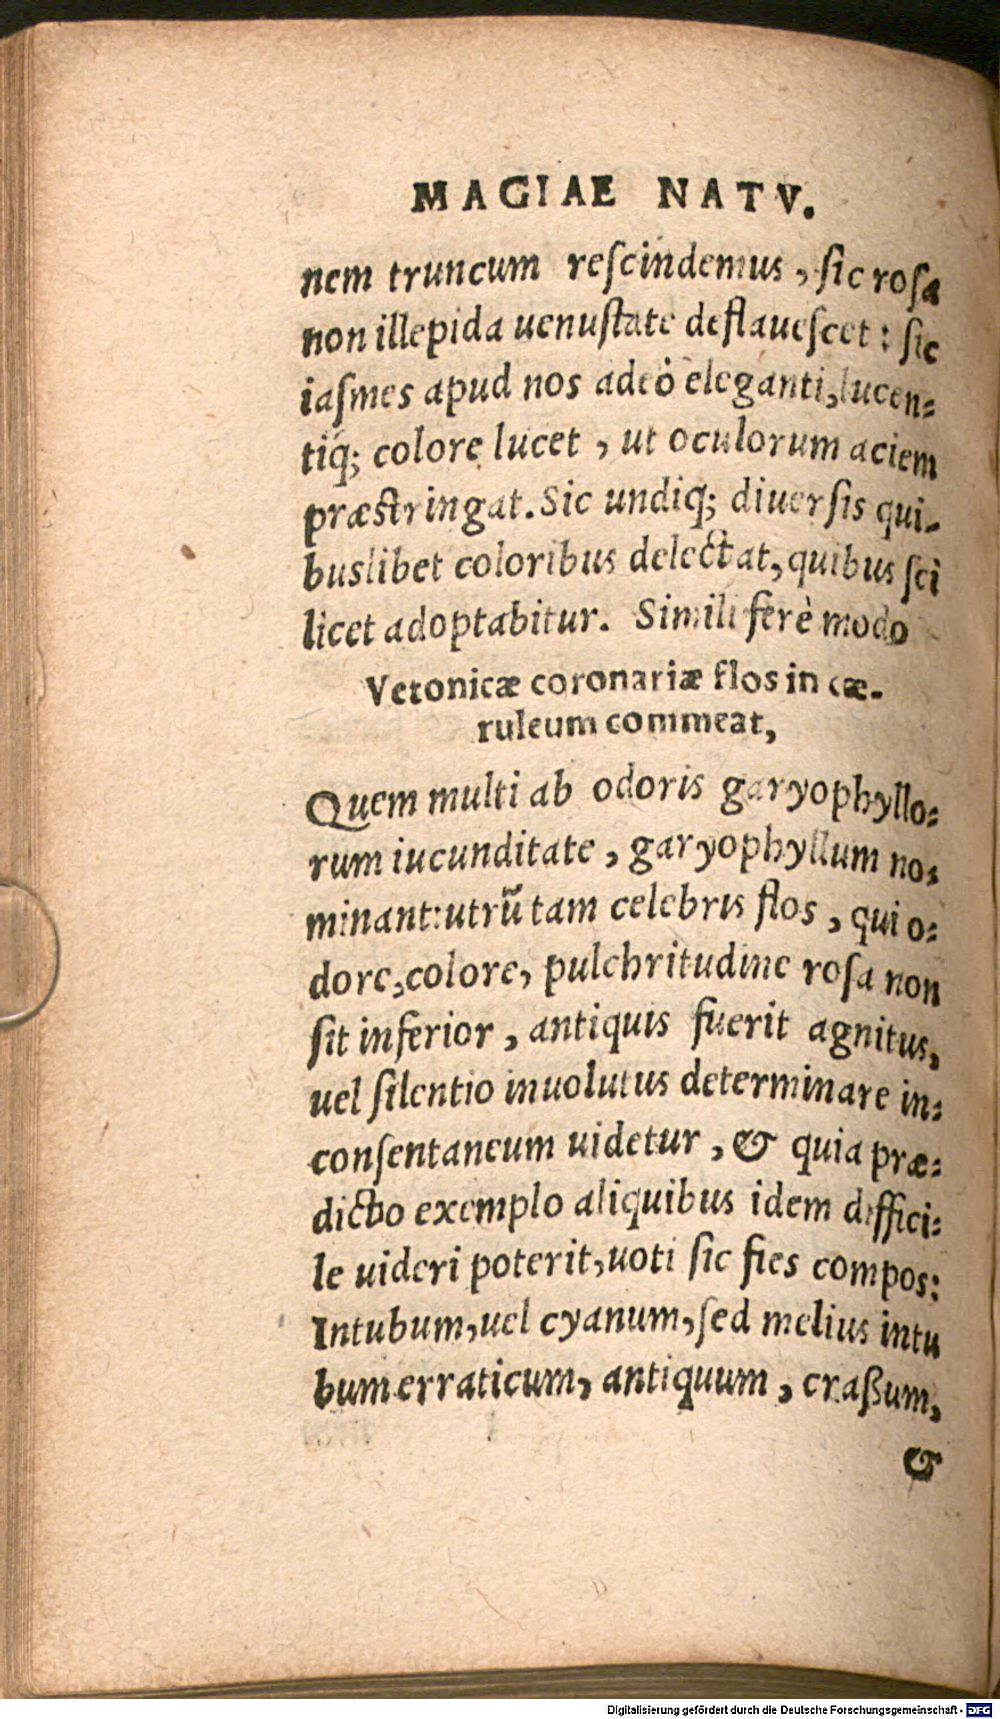 MAGIAE NATV.
nem truncum reſcindemus, ſic roſa
non illepida uenuſtate deflaueſcet: ſic
iaſmes apud nos adeò eleganti, lucen-
tiq́; colore lucet, ut oculorum aciem
præstringat. Sic undiq́; diuerſis qui-
buslibet coloribus delectat, quibus ſci
licet adoptabitur. Simili ferè modo
Vetonicæ coronariæ flos in cæ-
ruleum commeat,
Quem multi ab odoris garyophyllo-
rum iucunditate, garyophyllum no-
minant: utrũ tam celebris flos, qui o-
dore, colore, pulchritudine roſa non
ſit inferior, antiquis fuerit agnitus,
uel ſilentio inuolutus determinare in-
conſentaneum uidetur, & quia præ-
dicto exemplo aliquibus idem diffici-
le uideri poterit, uoti ſic fies compos:
Intubum, uel cyanum, ſed melius intu
bum erraticum, antiquum, craßum,
&
Digitalisierung gefördert durch die Deutsche Forschungsgemeinschaft - DFG